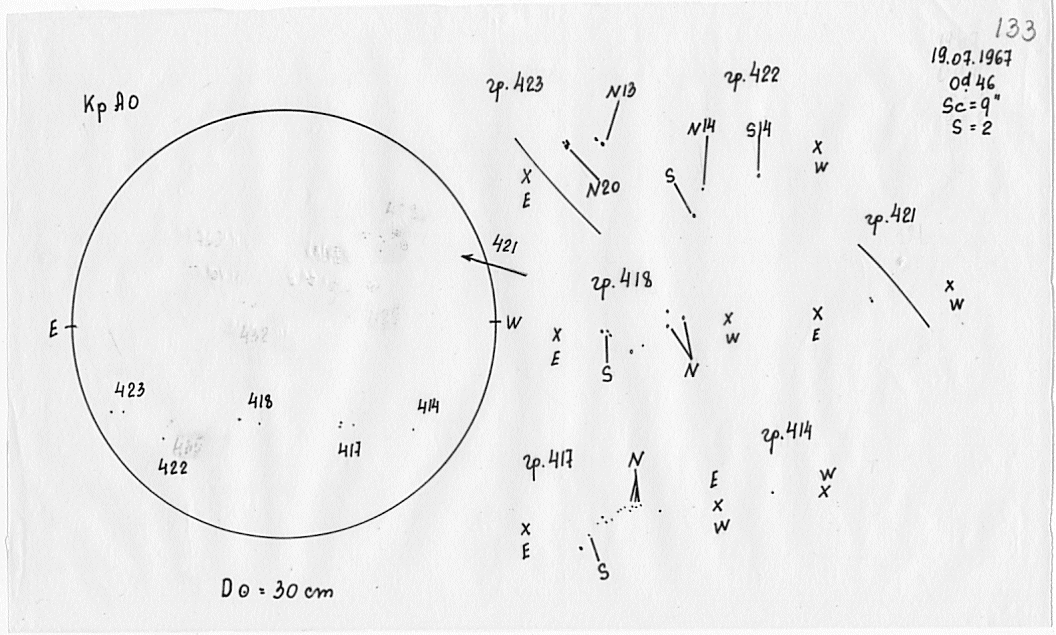 133
19.07.1967
0d.46
Sc=9"
S=2
Кр АО
гр.423
N13
N20
X
E
гр.422
N14
S14
S
X
W
421
гр.421
X
E
X
W
гр.418
X
E
S
N
X
W
E
W
423
418
414
422
417
гр.417
X
E
N
S
X
W
гр.414
E
X
W
X
D⊙ = 30 cm